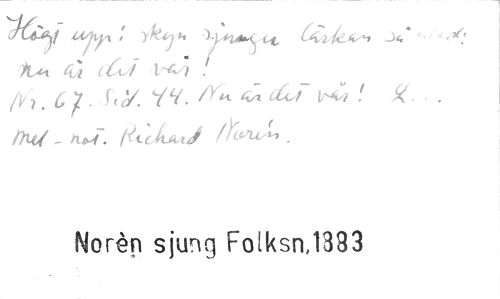 Högt upp i skyn sjunger lärkan så glad:
nu är det vår!
Nr. 67. Sid. 44. Nu är det vår! L...
Mel-not. Richard Norén.
Norèn sjung Folksn,1883